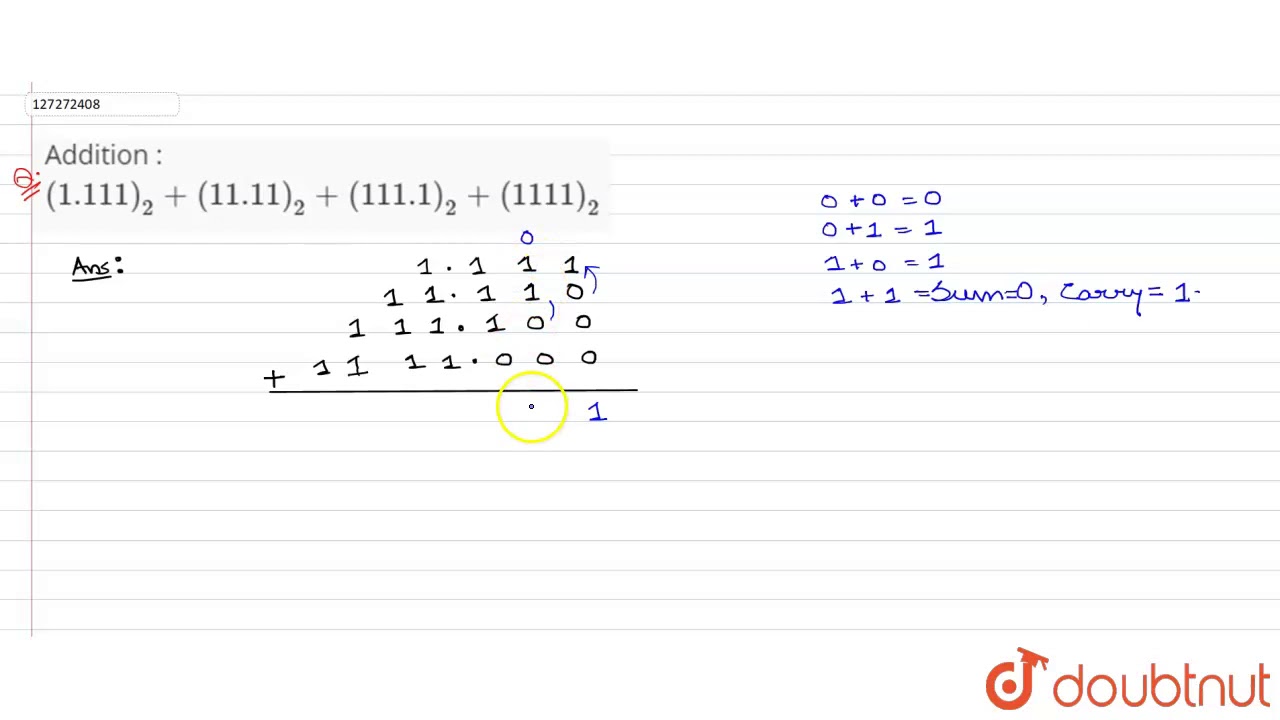 127272408
Addition :
Q:
(1.111)₂ + (11.11)₂ + (111.1)₂ + (1111)₂
Ans:
0
1 . 1 1 1
1 1 . 1 1 0
1 1 1 . 1 0 0
+ 1 1 1 1 . 0 0 0
1
0 + 0 = 0
0 + 1 = 1
1 + 0 = 1
1 + 1 = Sum=0, Carry = 1.
doubtnut